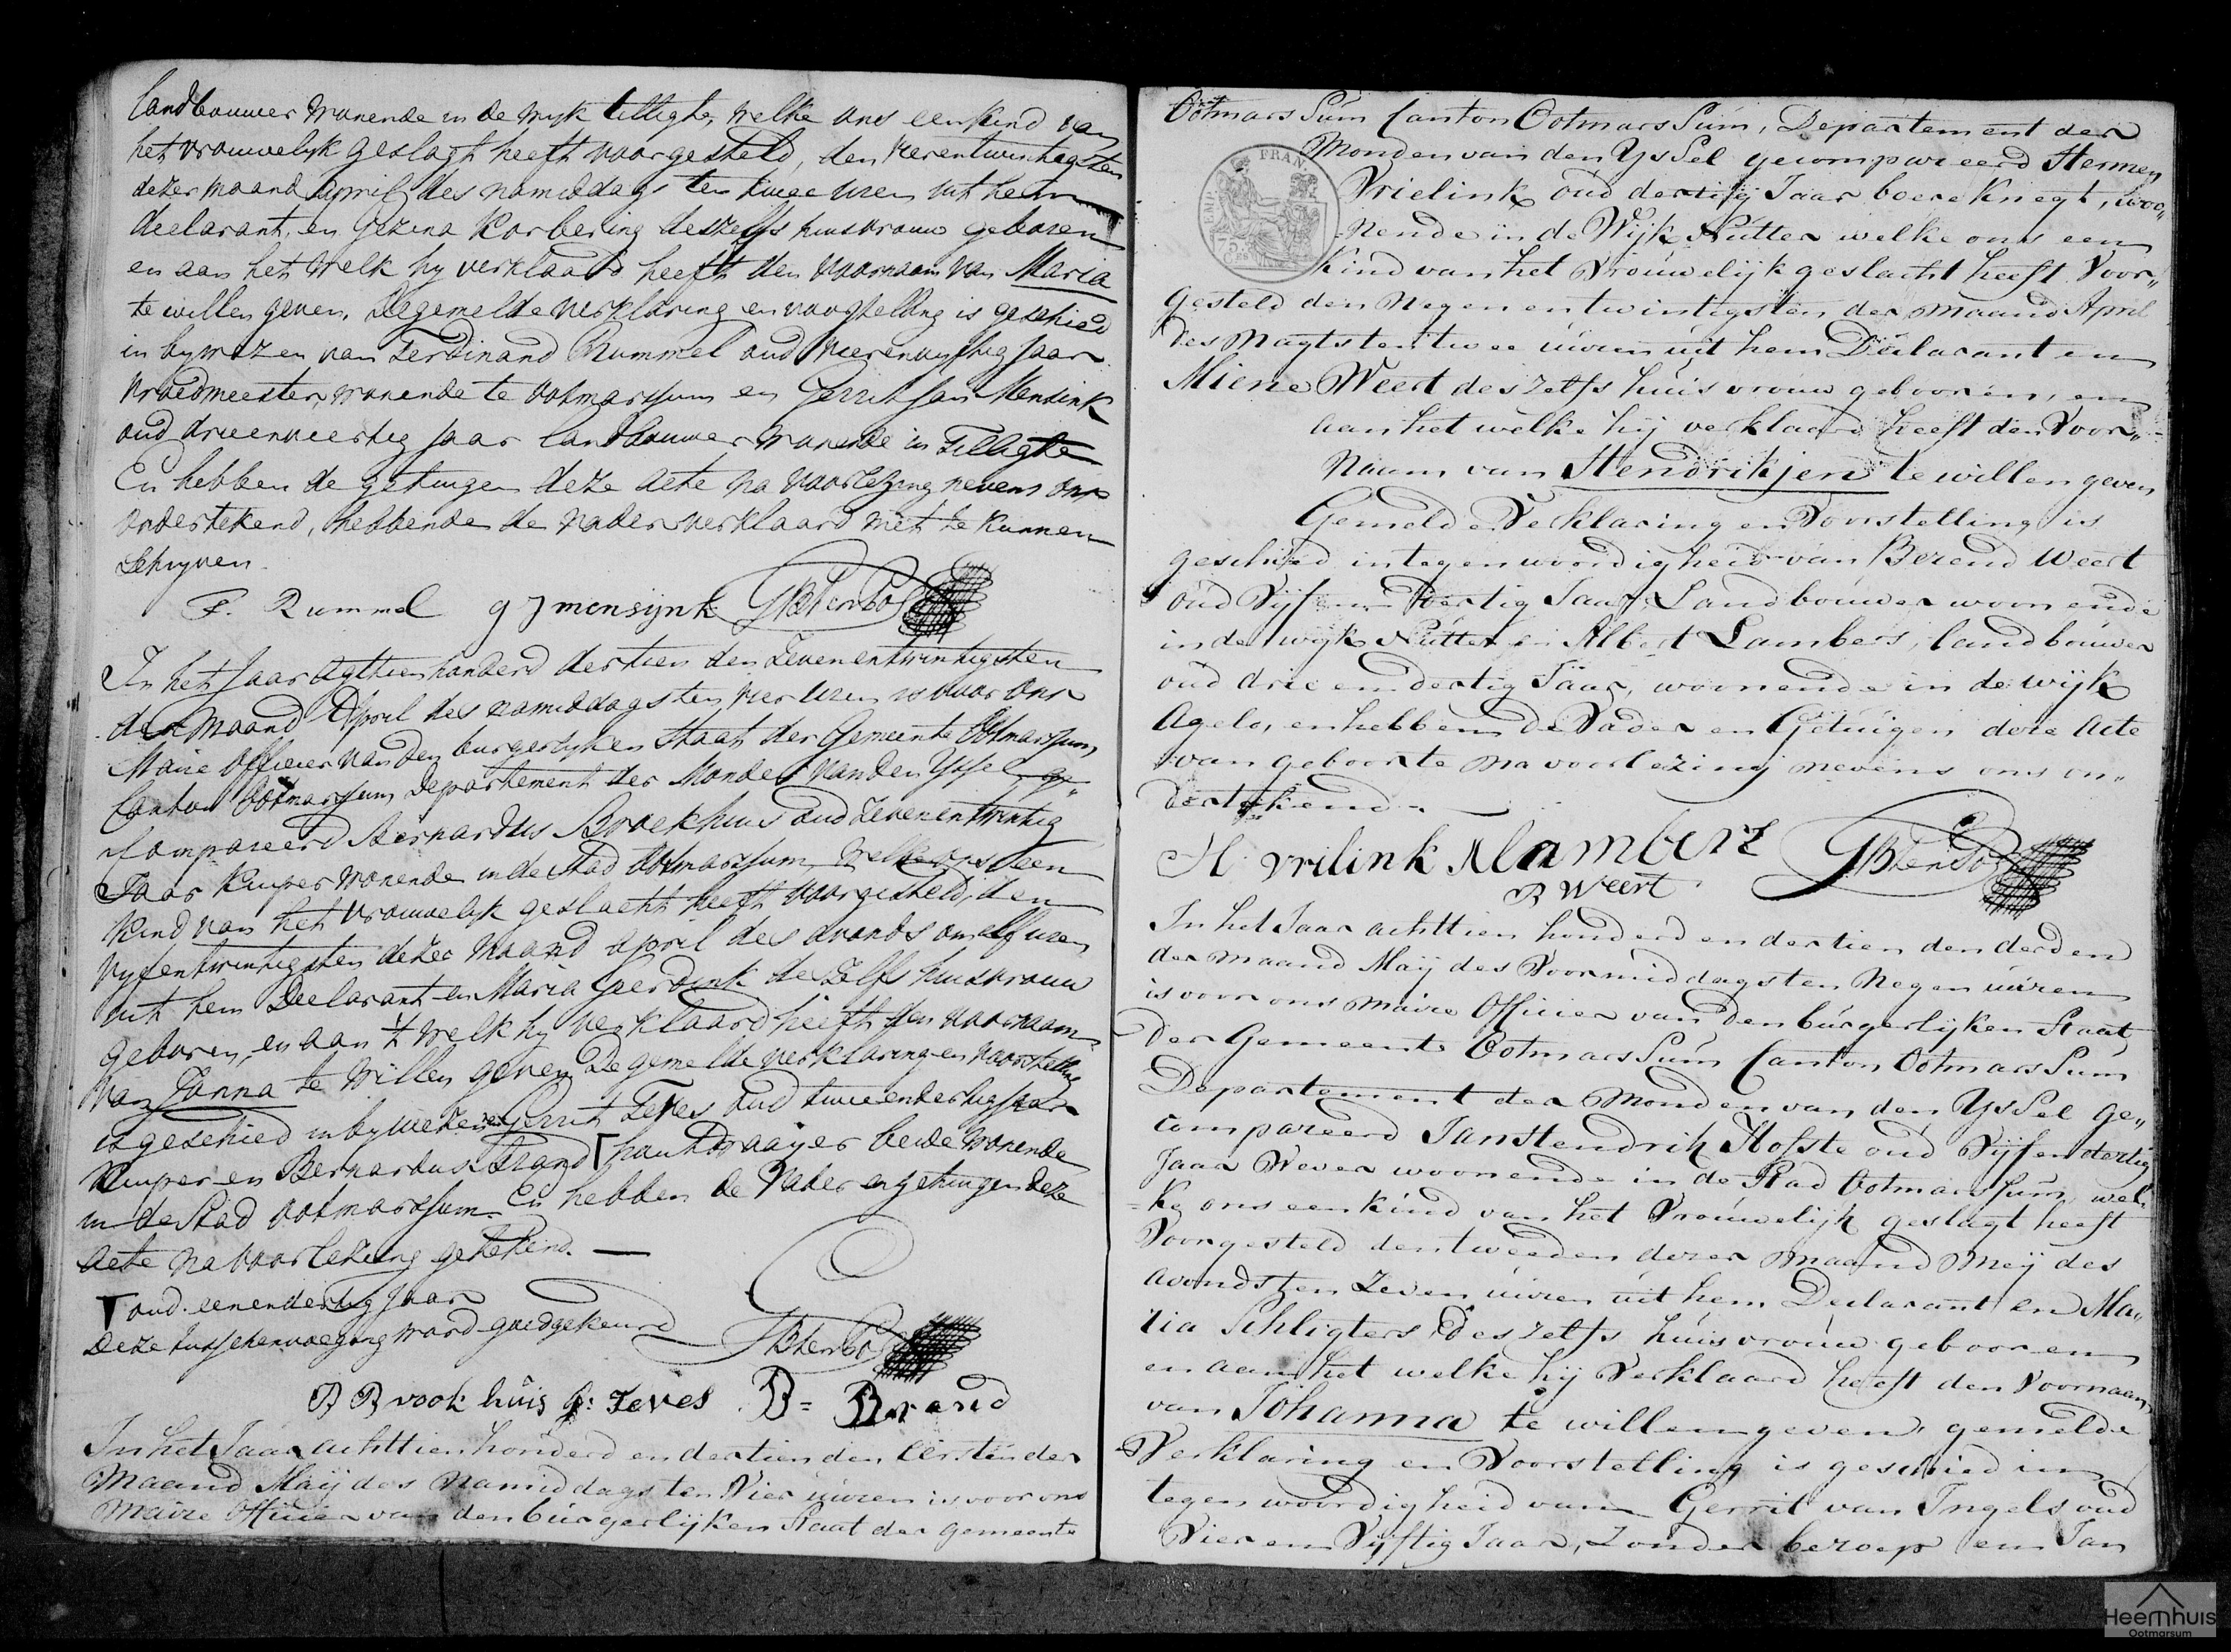 landbouwer wonende in de wyk tilligte, welke ons een kind van
het vrouwelyk geslagt heeft voorgesteld, den vierentwintigsten
dezer maand april des namiddags ten twee uren uit hem
declarant, en Gezina Korbering deszelfs huisvrouw geboren
en aan het welk hy verklaard heeft den voornaam van Maria
te willen geven. De gemelde verklaring en voorstelling is geschied
in bywezen van Ferdinand Rummel oud vierenvyftig jaar
vroedmeester, wonende te ootmarssum en Gerrit Jan Mensink
oud drieenveertig jaar landbouwer wonende in Tilligte
En hebben de getuigen deze acte na voorlezing nevens ons
ondertekend, hebbende de vader verklaard niet te kunnen
schryven.
F. Rummel g J mensijnk
In het jaar agttienhonderd dertien den zevenentwintigsten
der maand April des namiddags ten vier uren is voor ons
Maire officier van den burgerlyken staat der Gemeente Ootmarssum
Canton Ootmarssum, departement der Monden van den Yssel ge„
compareerd Bernardus Broekhuis oud zevenentwintig
Jaar kuiper wonende in de stad Ootmarssum, welke ons een
kind van het vrouwelyk geslacht heeft voorgesteld, den
vyfentwintigsten dezer maand april des avonds om elf uren
uit hem declarant en Maria Geerdink deszelfs huisvrouw
geboren, en aan 't welk hy verklaard heeft den voornaam
van Janna te willen geven. De gemelde verklaring en voorstelling
is geschied in bywezen van Gerrit Zeves oud tweeendertig jaar
kuiper en Bernardus Brand ┌ houtdraayer beide wonende
in de stad ootmarssum. En hebben de vader en getuigen deze
acte na voorlezing getekend. —
┌ oud eenendertig jaar
Deze tusschenvoeging word goedgekeurd
B Broek huis g: Zeves B= Brand
In het Jaar achttien honderd en dertien den eersten der
Maand Maij des Namiddags ten Vier uuren is voor ons
Maire Officier van den burgerlijken Staat der gemeente
Ootmars Sum Canton Ootmars Sum, Departement der
Monden van den YsSel gecompareerd Hermen
Vrielink oud dertig Jaar boere Knegt, woo„
nende in de Wijk Nutter welke ons een
Kind van het Vrouwelijk geslacht heeft Voor„
gesteld den Negen en twintigsten der maand April
des Nagts ten twee uuren uit hem Declarant en
Miene Weert deszelfs huis vrouw gebooren, en
aan het welke hij verklaard heeft den Voor„
Naam van Hendrikjen te willen geven
Gemelde Verklaring en Voorstelling is
geschied in tegenwoordigheid van Berend Weert
oud Vijf en Veertig Jaar Landbouwer woonende
in de wijk Nutter en Albert Lambers, landbouwer
oud drie en dertig Jaar, woonende in de wijk
Agelo, en hebben de Vader en Getuigen deze Acte
van geboorte na voorlezing nevens ons on„
dertekend.
H. Vrilink A Lamberz
B Weert
In het Jaar achttien honderd en dertien den derden
der maand Maij des Voormiddags ten Negen uuren
is voor ons maire Officier van den burgerlijken Staat
der Gemeente Ootmars Sum Canton Ootmars Sum
Departement der Monden van den YsSel Ge„
compareerd Jan Hendrik Hofste oud Vijf en dertig
Jaar Wever woonende in de Stad Ootmarssum wel„
ke ons een kind van het Vrouwelijk geslagt heeft
Voorgesteld den tweeden dezer maand Meij des
avonds ten Zeven uuren uit hem Declarant en Ma„
ria Schligters deszelfs huisvrouw gebooren
en aan het welke hij Verklaard heeft den Voornaam
van Johanna te willen geven, gemelde
Verklaring en Voorstelling is geschied in
tegenwoordigheid van Gerrit van Ingels oud
Vier en Vyftig Jaar, Zonder beroep en Jan
FRAN
75
Heemhuis
Ootmarsum